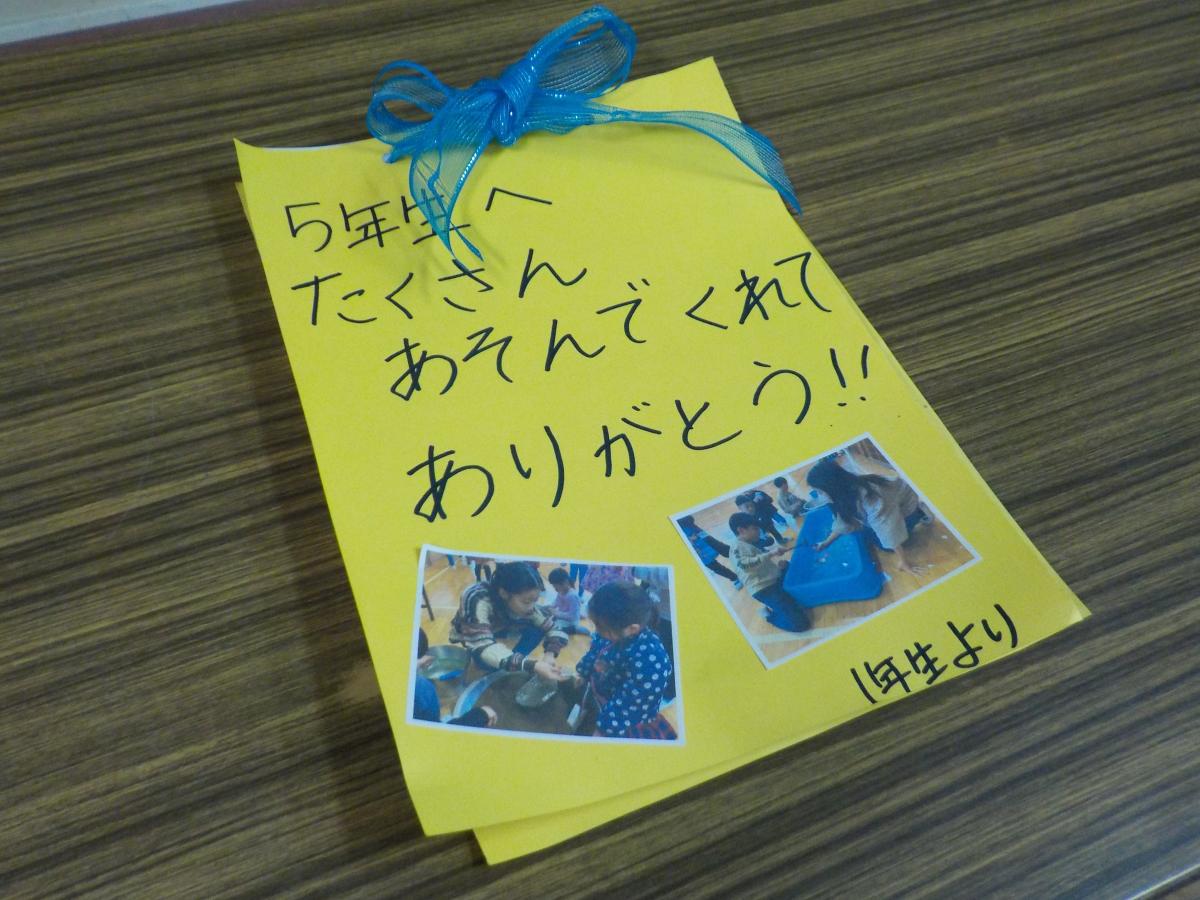 5年生へ
たくさん
あそんでくれて
ありがとう!!
1年生より